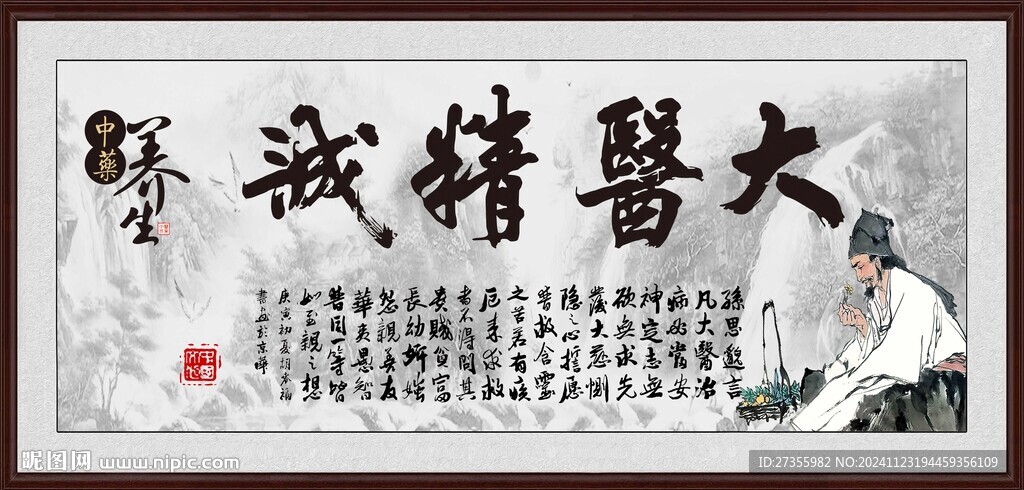 大醫精誠
孫思邈言
凡大醫治
病必當安
神定志無
欲無求先
發大慈惻
隱之心誓愿
普救含靈
之苦若有疾
厄來求救
者不得問其
貴賤貧富
長幼妍媸
怨親善友
華夷愚智
普同一等皆
如至親之想
庚寅初夏
於京華
中藥
养生
昵图网 www.nipic.com
ID:27355982 NO:20241123194459356109